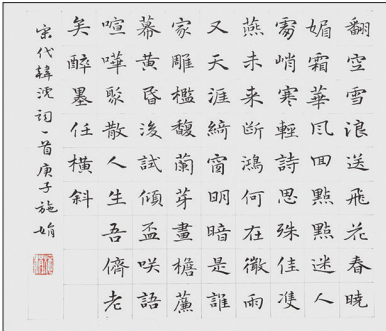 翻空雪浪送飛花春曉
媚霜華風回點點迷人
處峭寒輕詩思殊佳雙
燕未來斷鴻何在微雨
又天涯綺窗明暗是誰
家雕檻馥蘭芽畫檐簾
幕黃昏後試傾盃咲語
喧嘩聚散人生吾儕老
矣醉墨任橫斜
宋代韓淲詞一首庚子施娟